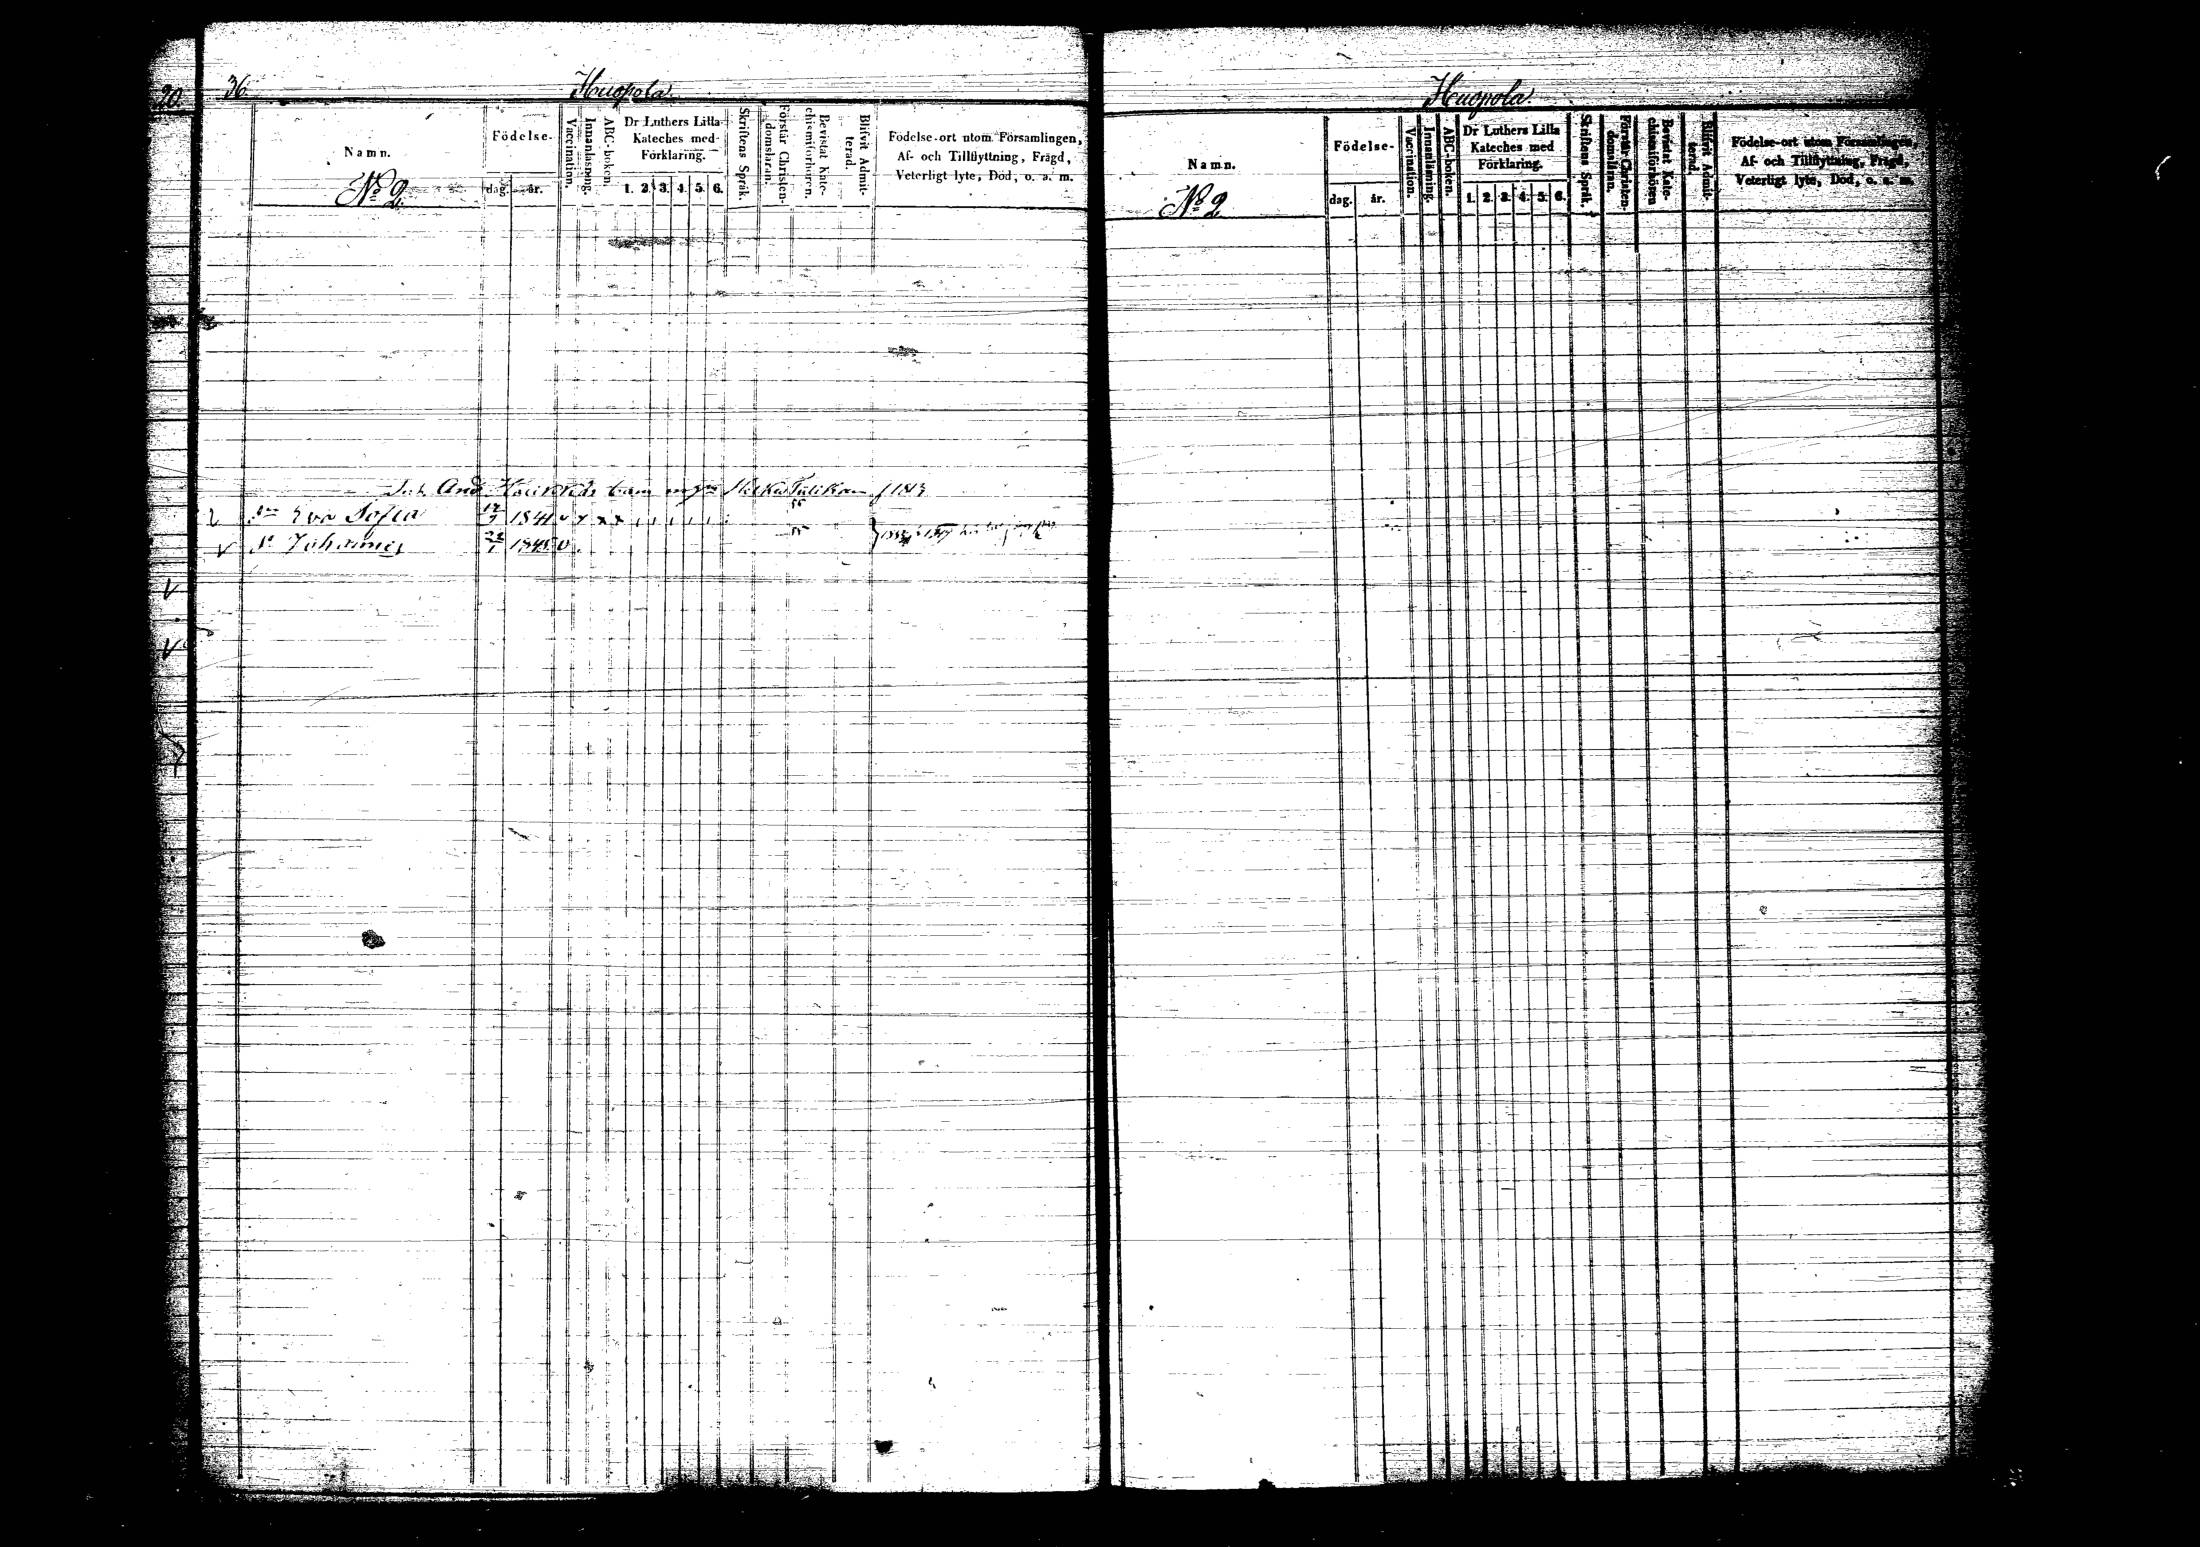 20.
36
Huopola.
Namn.
No 2
Födelse-
dag. år.
Vaccination.
Innanläsning.
ABC-boken.
Dr Luthers Lilla
Kateches med
Förklaring.
1. 2. 3. 4. 5. 6.
Skriftens Språk.
Förstår Christen-
domsläran.
Bevistat Kate-
chismiförhören.
Blifvit Admit-
terad.
Födelse-ort utom Församlingen,
Af- och Tillflyttning, Frägd,
Veterligt lyte, Död, o. a. m.
And. barn f 1813
Eva Sofia 1841
Johannes 1845
Huopola.
Namn.
No 2
Födelse-
dag. år.
Vaccination.
Innanläsning.
ABC-boken.
Dr Luthers Lilla
Kateches med
Förklaring.
1. 2. 3. 4. 5. 6.
Skriftens Språk.
Förstår Christen-
domsläran.
Bevistat Kate-
chismiförhören
Blifvit Admit-
terad.
Födelse-ort utom Församlingen,
Af- och Tillflyttning, Frägd,
Veterligt lyte, Död, o. a. m.